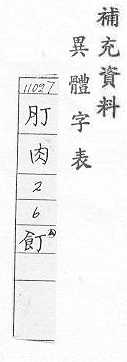 補充資料
異體字表
11027
肉
2
6
飣